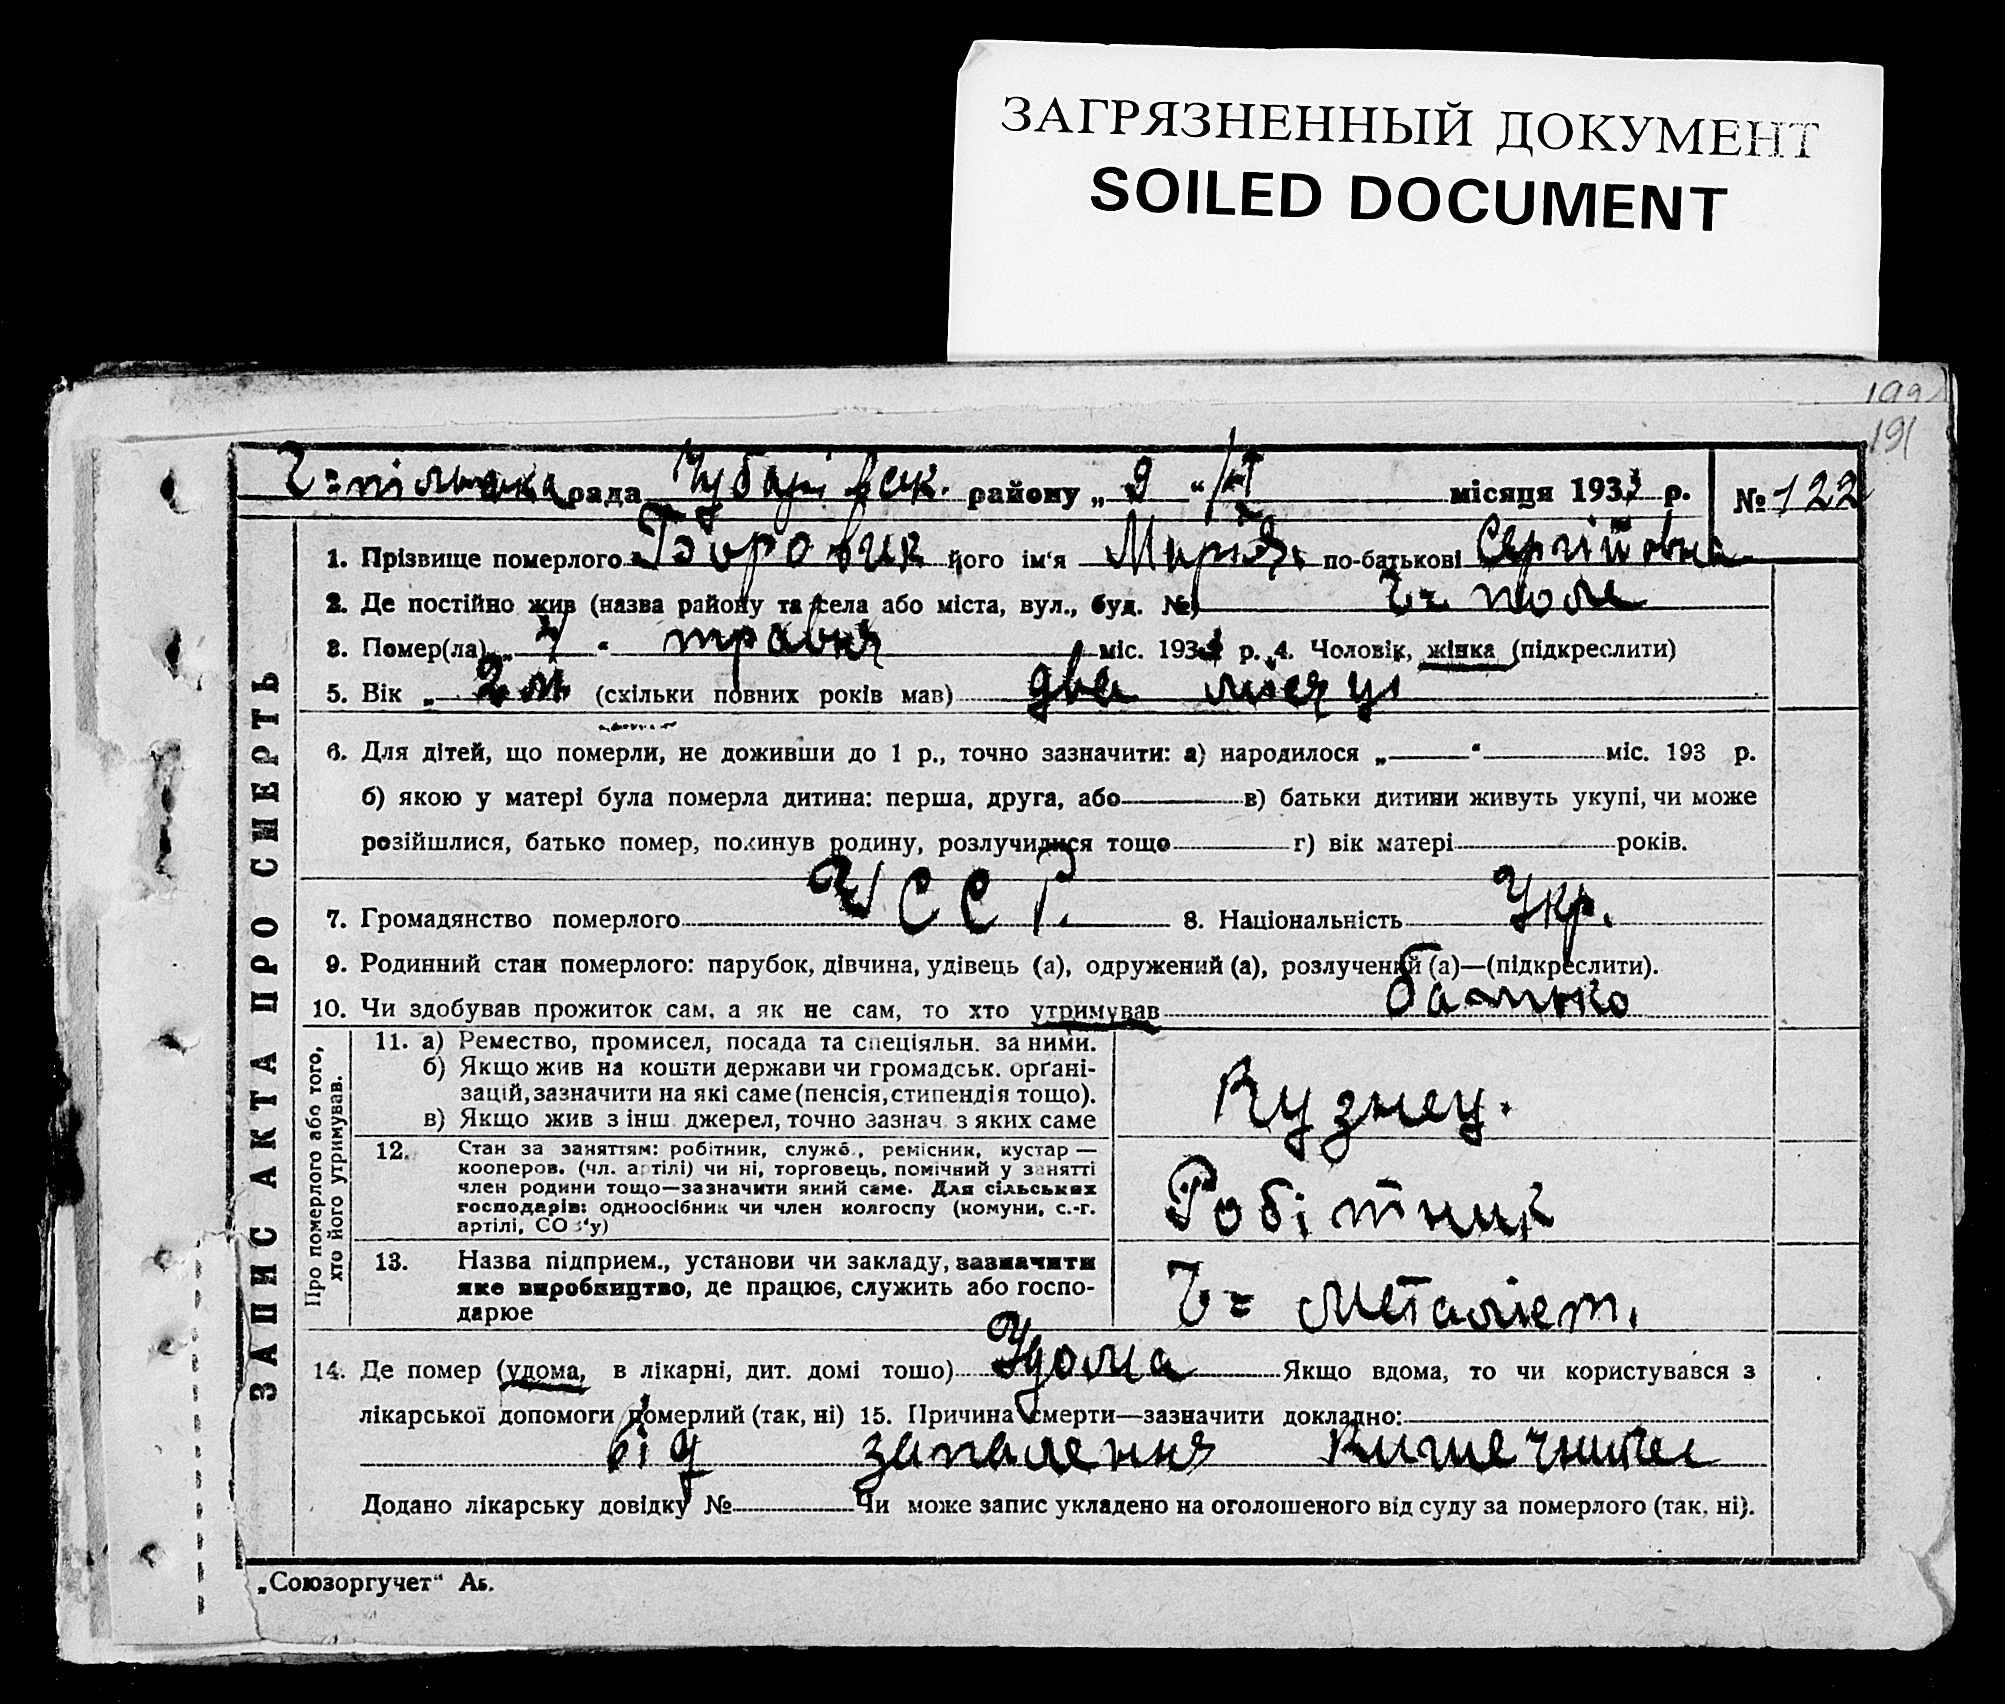 ЗАГРЯЗНЕННЫЙ ДОКУМЕНТ
SOILED DOCUMENT
191
Г=пільська рада Чубарівськ. району „ 9 “ місяця 1933 р. № 122
ЗАПИС АКТА ПРО СМЕРТЬ
1. Прізвище померлого Боровик його ім‘я по-батькові Сергіївна
2. Де постійно жив (назва району та села або міста, вул., буд. № Г= поле
3. Помер(ла) „ 7 “ травня міс. 1933 р. 4. Чоловік, жінка (підкреслити)
5. Вік „ 2 м (скільки повних років мав) два місяці
6. Для дітей, що померли, не доживши до 1 р., точно зазначити: а) народилося „ “ міс. 193 р.
б) якою у матері була померла дитина: перша, друга, або в) батьки дитини живуть укупі, чи може
розійшлися, батько помер, покинув родину, розлучилися тощо г) вік матері років.
7. Громадянство померлого УССР. 8. Національність Укр.
9. Родинний стан померлого: парубок, дівчина, удівець (а), одружений (а), розлучений (а)—(підкреслити).
10. Чи здобував прожиток сам, а як не сам, то хто утримував батько
Про померлого або того,
хто його утримував.
11. а) Ремество, промисел, посада та спеціяльн. за ними.
б) Якщо жив на кошти держави чи громадськ. орґані-
зацій, зазначити на які саме (пенсія, стипендія тощо).
в) Якщо жив з інш. джерел, точно зазнач. з яких саме
Кузнец.
12. Стан за заняттям: робітник, службов., ремісник, кустар —
кооперов. (чл. артілі) чи ні, торговець, помічний у занятті
член родини тощо—зазначити який саме. Для сільських
господарів: одноосібник чи член колгоспу (комуни, с.-г.
артілі, СОЗ‘у)
Робітник
13. Назва підприєм., установи чи закладу, зазначити
яке виробництво, де працює, служить або госпо-
дарює
Г= Металіст.
14. Де помер (удома, в лікарні, дит. домі тошо) Удома Якщо вдома, то чи користувався з
лікарської допомоги померлий (так, ні) 15. Причина смерти—зазначити докладно:
від запалення кишечника
Додано лікарську довідку № Чи може запис укладено на оголошеного від суду за померлого (так, ні).
„Союзоргучет“ Аб.